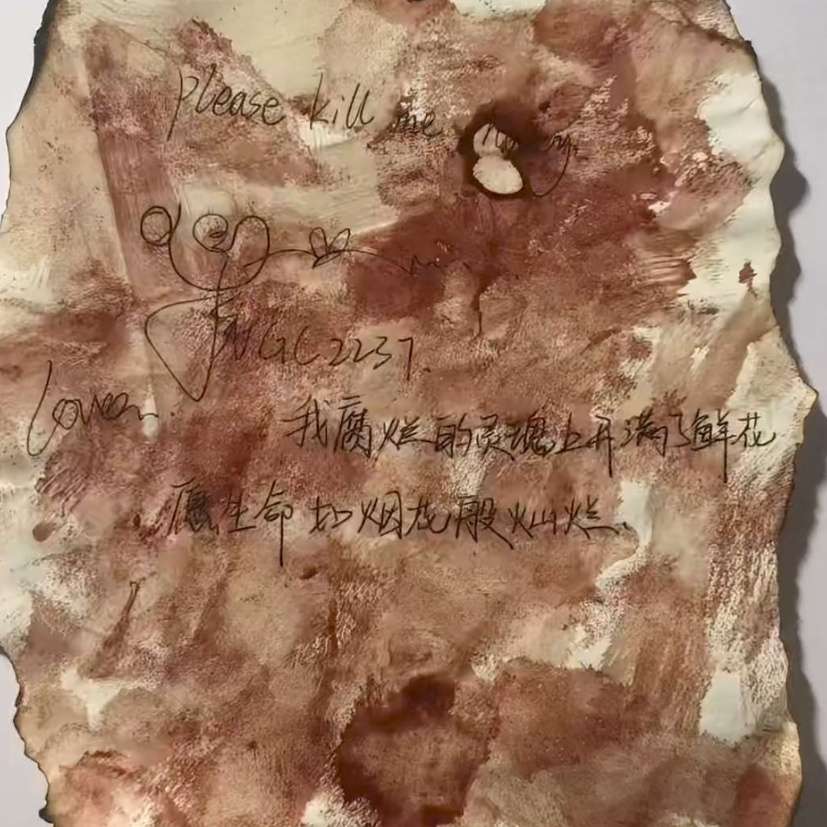 Please kill me
NGC2237.
Lover.
我腐烂的灵魂上开满了鲜花
愿生命如烟花般灿烂.